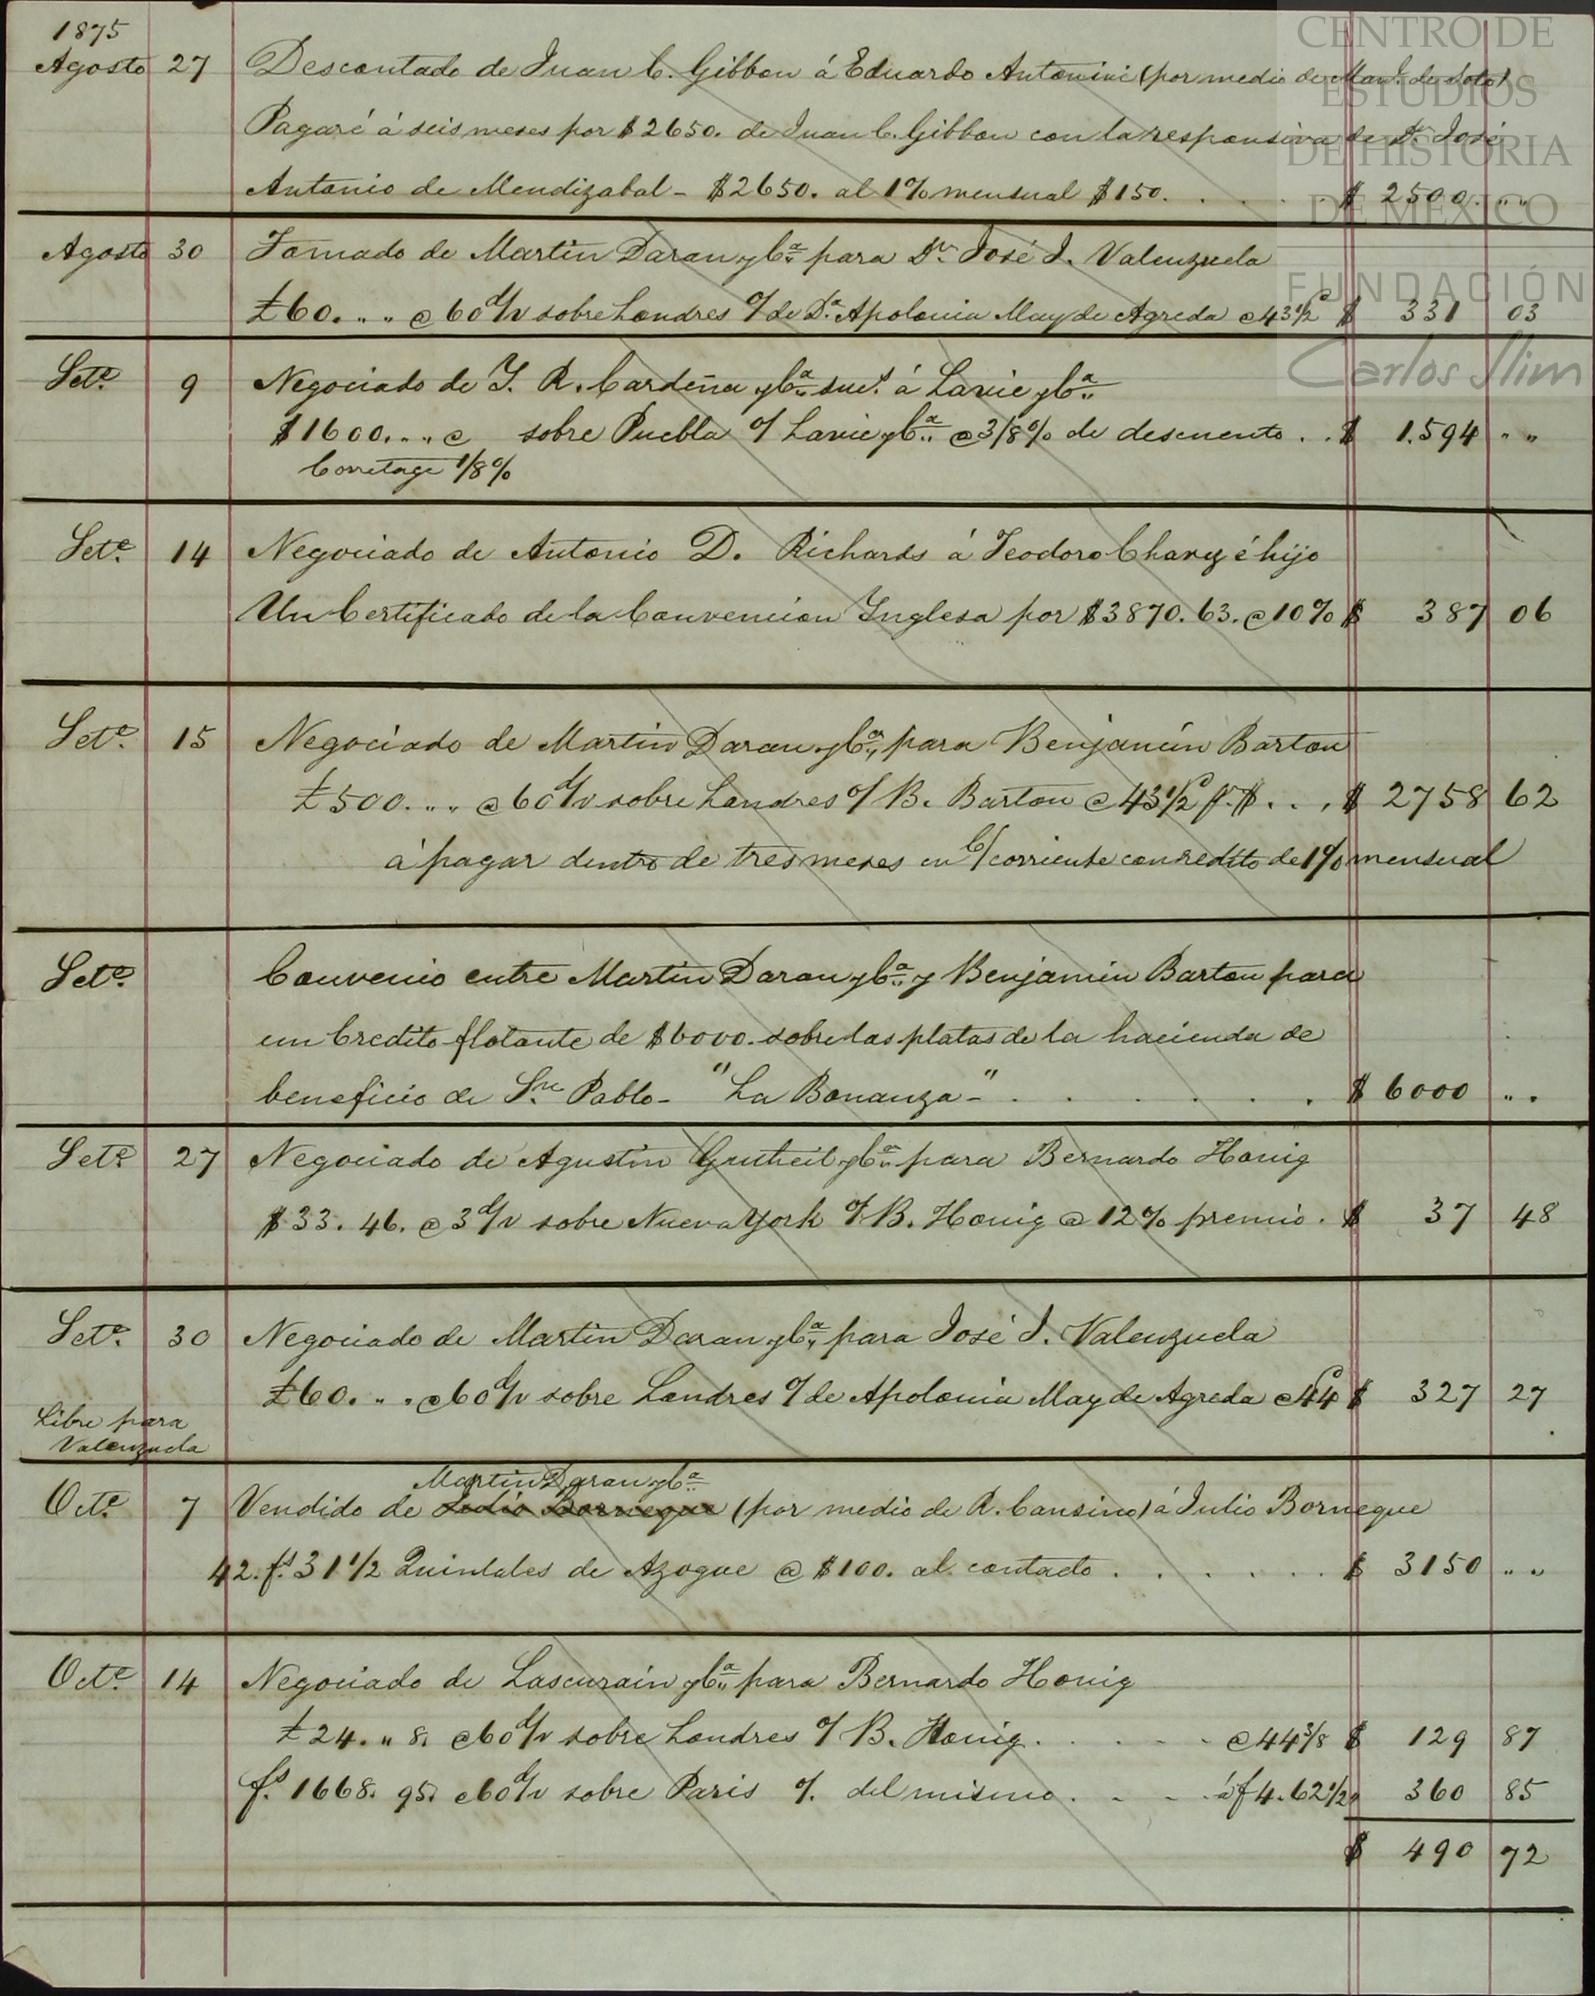 CENTRO DE
ESTUDIOS
DE HISTORIA
DE MÉXICO
FUNDACIÓN
Carlos Slim
1875
Agosto 27 Descontado de Juan C. Gibbon á Eduardo Antonini (por medio de Manl. de Soto)
Pagaré á seis meses por $2650. de Juan C. Gibbon con la responsiva de Dn. José
Antonio de Mendizabal - $2650. al 1% mensual $150. . . . . . $ 2500. " "
Agosto 30 Tomado de Martin Daran y Ca. para Dn. José J. Valenzuela
£60. " " @ 60 d/v sobre Londres o/ de Da. Apolonia May de Agreda @ 43½ d $ 331 03
Sete. 9 Negociado de J. R. Cardeña y Ca. suc. á Lavie y Ca.
$1600. " " @ sobre Puebla o/ Lavie y Ca. @ 3/8% de descuento . . $ 1.594 " "
Corretage 1/8%
Sete. 14 Negociado de Antonio D. Richards á Teodoro Chavez é hijo
Un Certificado de la Convencion Ynglesa por $3870.63. @ 10% $ 387 06
Sete. 15 Negociado de Martin Daran y Ca. para Benjamin Barton
£500. " " @ 60 d/v sobre Londres o/ B. Barton @ 43½ d p. $. . . $ 2758 62
á pagar dentro de tres meses en C/ corriente con redito de 1% mensual
Sete. Convenio entre Martin Daran y Ca. y Benjamin Barton para
un Credito flotante de $6000. sobre las platas de la hacienda de
beneficio de Sn. Pablo - "La Bonanza -" . . . . . . . $ 6000 " .
Sete. 27 Negociado de Agustin Gutheil y Ca. para Bernardo Honig
$33. 46. @ 3 d/v sobre Nueva York o/ B. Honig @ 12% premio . $ 37 48
Sete. 30 Negociado de Martin Daran y Ca. para José J. Valenzuela
£60. " . @ 60 d/v sobre Londres o/ de Apolonia May de Agreda @ 44 d $ 327 27
Libre para
Valenzuela
Martin Daran y Ca.
Octe. 7 Vendido de Julio Borneque (por medio de R. Cansino) á Julio Borneque
42. fs. 31½ Quintales de Azogue @ $100. al contado . . . . . . $ 3150 " "
Octe. 14 Negociado de Lascurain y Ca. para Bernardo Honig
£24. " 8. @ 60 d/v sobre Londres o/ B. Honig . . . . . @ 44 3/8 $ 129 87
fs. 1668. 95. @ 60 d/v sobre Paris o/. del mismo . . . . á f 4.62½ " 360 85
$ 490 72